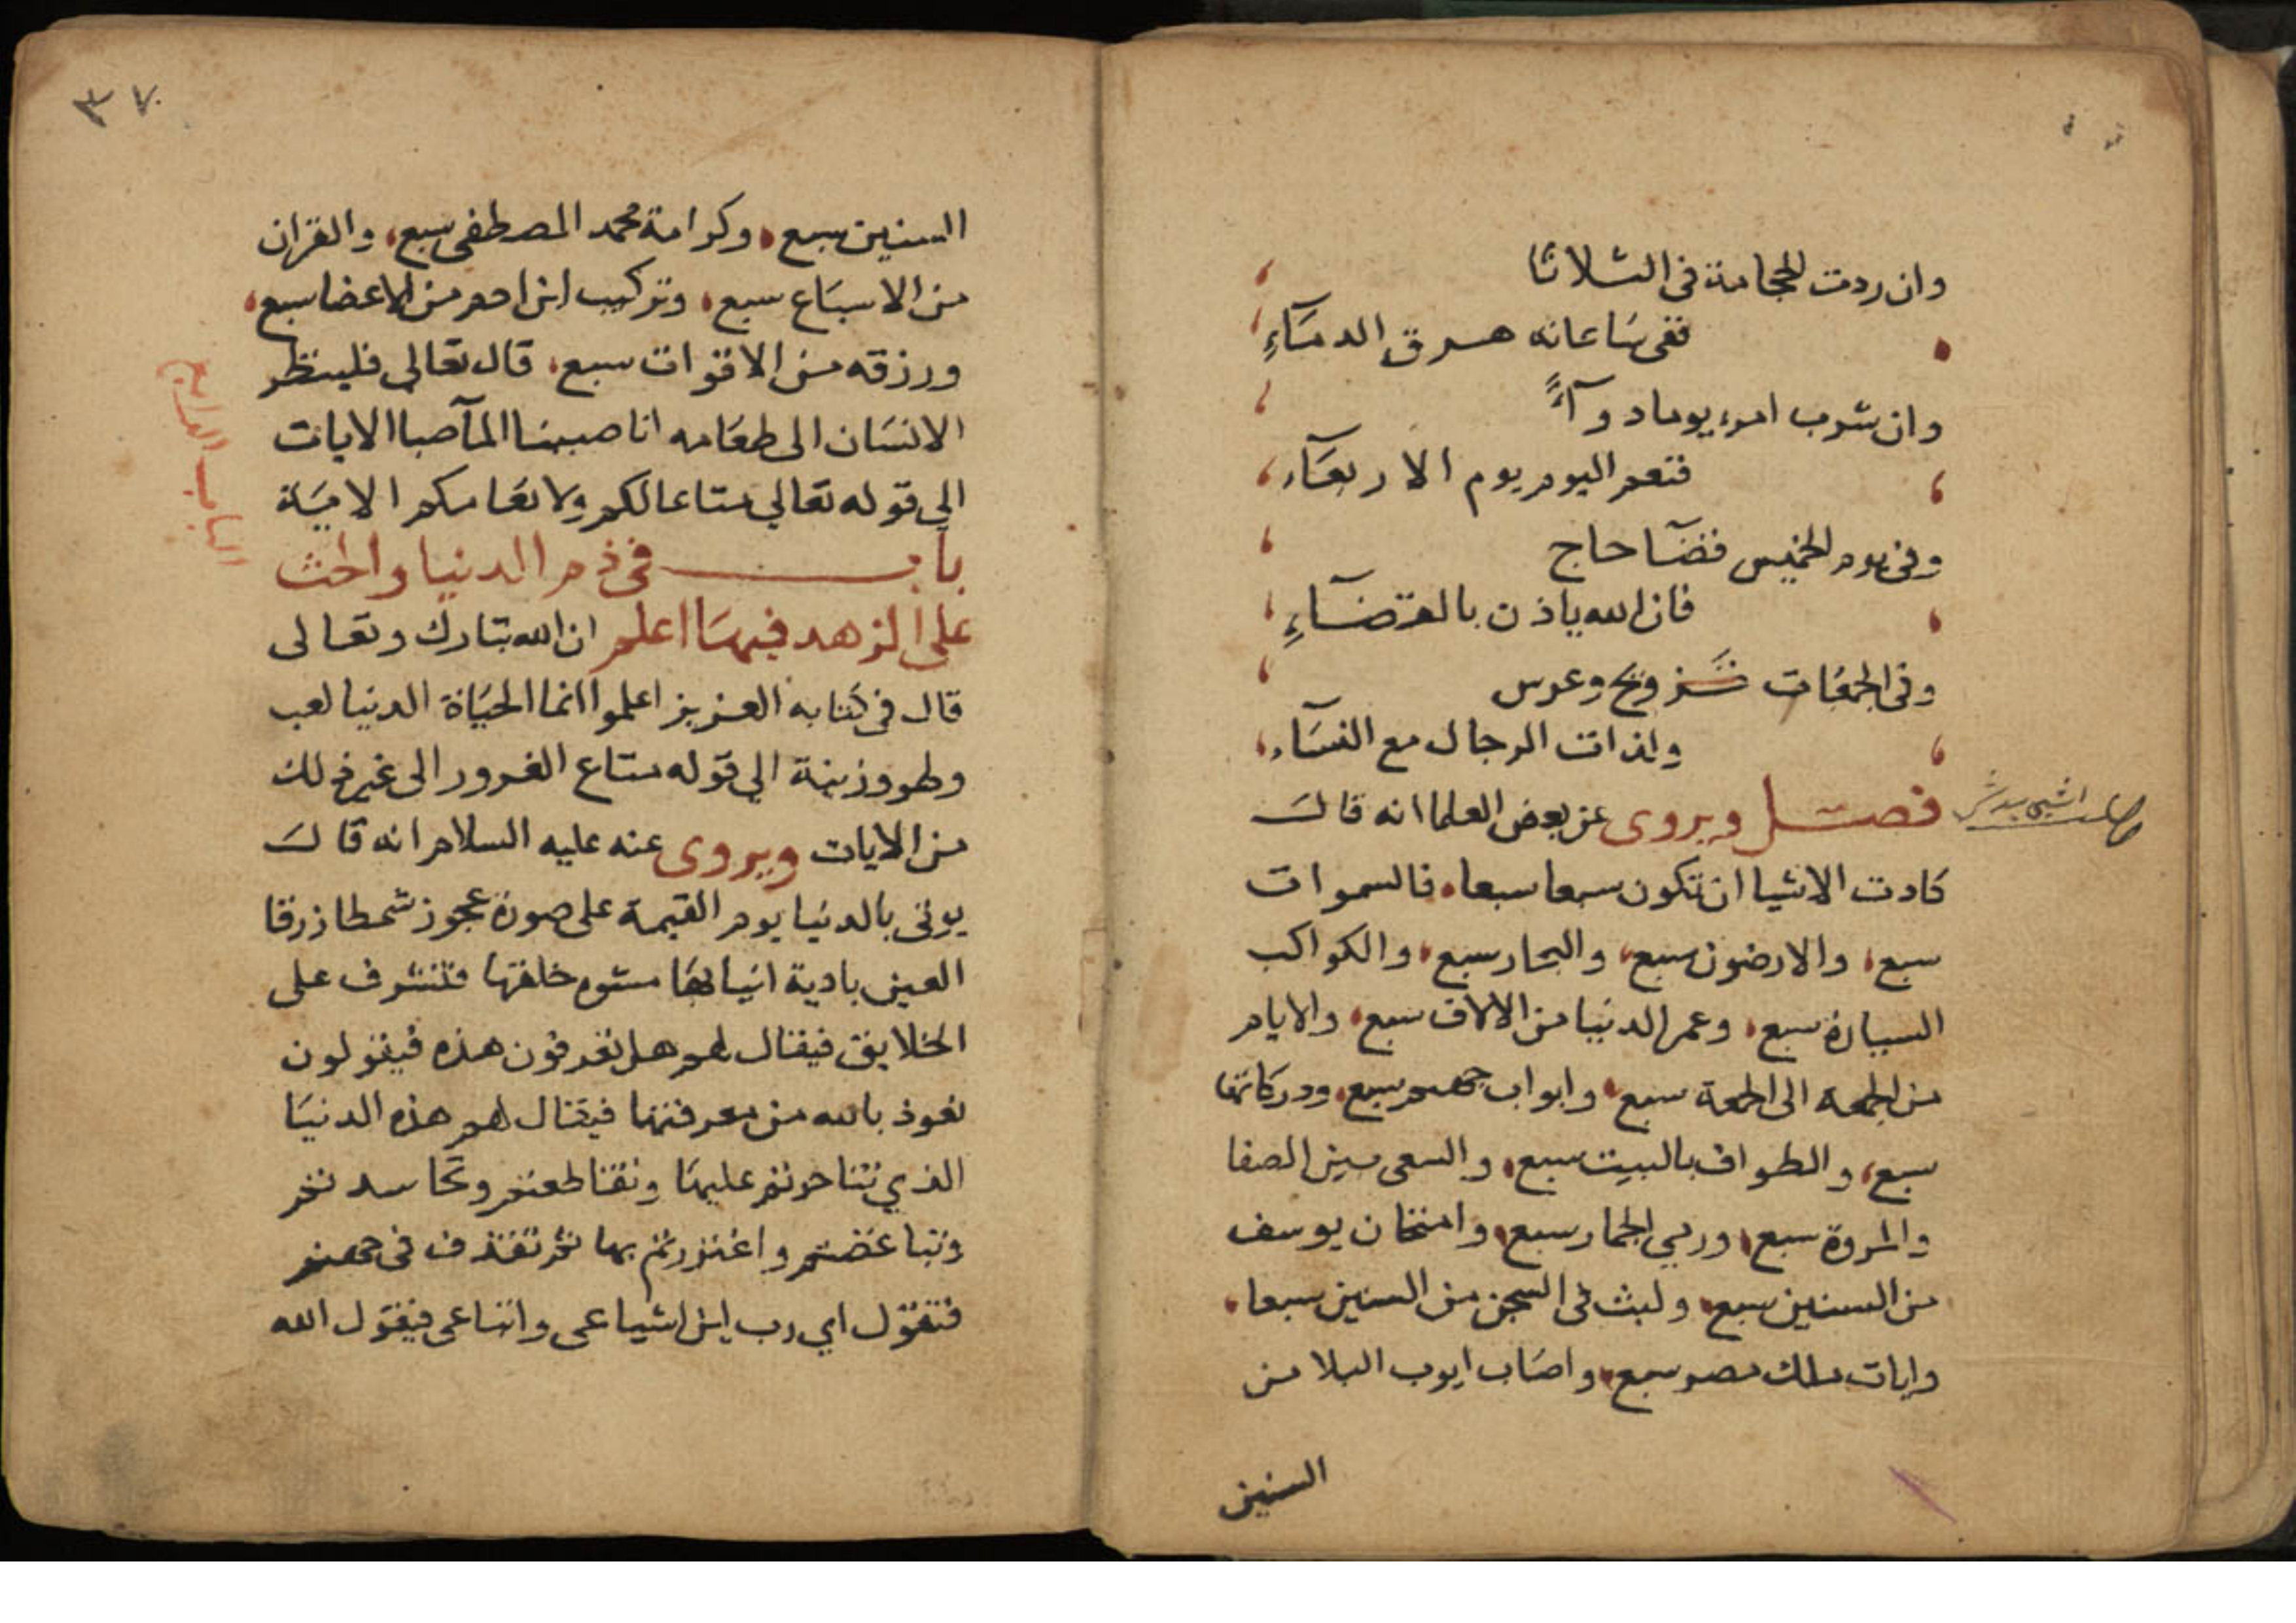 وان ردت الحجامة فى الثلاثا
ففى ساعاته هرق الدماء
وان شرب امرء يوما دوآء
فنعم اليوم يوم الاربعآء
وفى يوم الخميس قضآ حاج
فان الله ياذن بالقضآء
وفى الجمعات تزويج وعرس
ولذات الرجال مع النسآء
فصل ويروى عن بعض العلما انه قال
كادت الاشيا ان تكون سبعا سبعا، فالسموات
سبع، والارضون سبع، والبحار سبع، والكواكب
السيارة سبع، وعمر الدنيا من الالاف سبع، والايام
من الجمعة الى الجمعة سبع، وابواب جهنم سبع، ودركاتها
سبع، والطواف بالبيت سبع، والسعى بين الصفا
والمروة سبع، ورمي الجمار سبع، وامتحان يوسف
من السنين سبع، ولبث فى السجن من السنين سبعا،
وايات ملك مصر سبع، واصاب ايوب البلا من
السنين
٣٧
السنين سبع، وكرامة محمد المصطفى سبع، والقران
من الاسباع سبع، وتركيب ابن ادم من الاعضا سبع،
ورزقه من الاقوات سبع، قال تعالى فلينظر
الانسان الى طعامه انا صببنا المآ صبا الايات
الي قوله تعالي متاعا لكم ولانعامكم الاية
باب فى ذم الدنيا والحث
الباب الرابع
على الزهد فيها اعلم ان الله تبارك وتعالى
قال فى كتابه العزيز اعلموا انما الحياة الدنيا لعب
ولهو وزينة الي قوله متاع الغرور الى غير ذلك
من الايات ويروى عنه عليه السلام انه قال
يوتى بالدنيا يوم القيمة على صورة عجوز شمطا زرقا
العين بادية انيابها مشوم خلقتها فتشرف على
الخلايق فيقال لهم هل تعرفون هذه فيقولون
نعوذ بالله من معرفتها فيقال لهم هذه الدنيا
الذي تناحرتم عليها وتقاطعتم وتحاسدتم
وتباغضتم واغتررتم بها ثم تقذف فى جهنم
فتقول اي رب اين اشياعى واتباعى فيقول الله